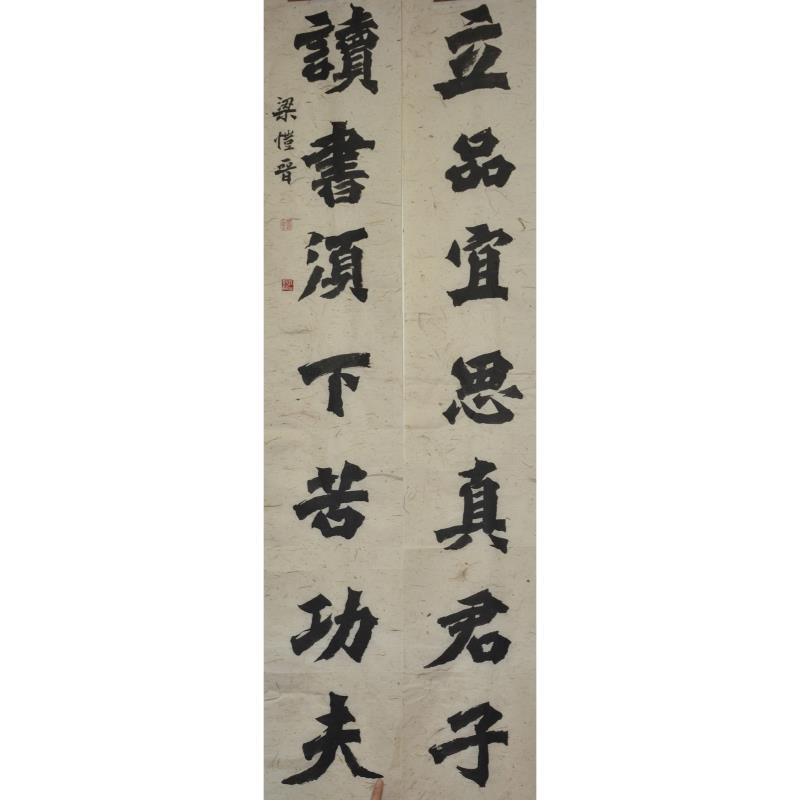 立品宜思真君子
讀書須下苦功夫
梁愷晋